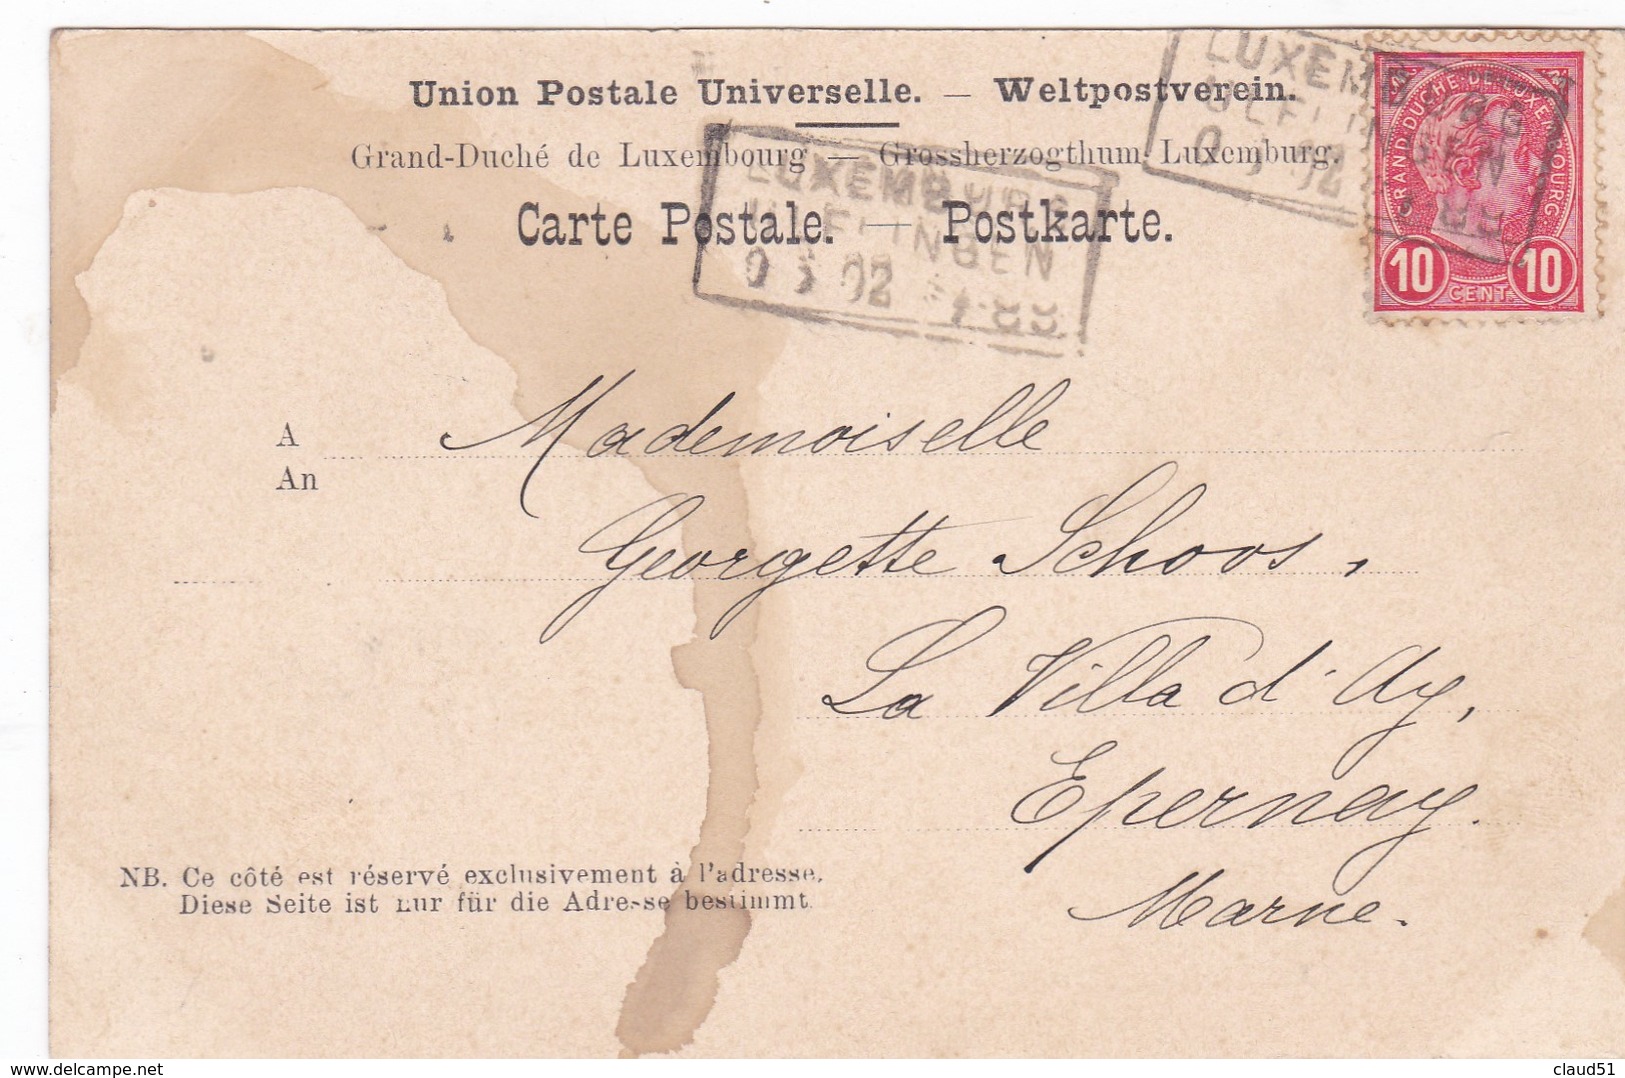 Union Postale Universelle. — Weltpostverein.
Grand-Duché de Luxembourg — Grossherzogthum Luxemburg.
Carte Postale. — Postkarte.
LUXEMBURG
ULFLINGEN
02
LUXEMBURG
ULFLINGEN
02
GRAND DUCHÉ DE LUXEMBOURG.
10 CENT. 10
A Mademoiselle
An
Georgette Schoos,
La Villa d'Ay,
Epernay.
Marne.
NB. Ce côté est réservé exclusivement à l'adresse.
Diese Seite ist nur für die Adresse bestimmt.
delcampe.net
claud51